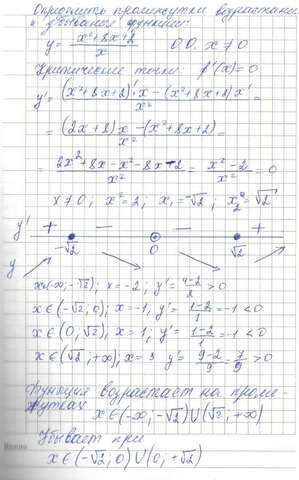 Определить промежутки возрастания
и убывания функции:
y = (x²+8x+2)/x О.О. x ≠ 0
Критические точки: f'(x) = 0
y' = ((x²+8x+2)'x − (x²+8x+2)x')/x² =
= ((2x+8)x − (x²+8x+2))/x² =
= (2x²+8x−x²−8x−2)/x² = (x²−2)/x² = 0
x ≠ 0; x² = 2; x₁ = −√2; x₂ = √2
y' + − − +
−√2 0 √2
y
x∈(−∞; −√2); x = −2; y' = (4−2)/2 > 0
x∈(−√2; 0); x = −1, y' = (1−2)/1 = −1 < 0
x∈(0, √2), x = 1; y' = (1−2)/1 = −1 < 0
x∈(√2; +∞); x = 3 y' = (9−2)/9 = 7/9 > 0
Функция возрастает на проме-
жутках x∈(−∞, −√2)∪(√2; +∞)
Убывает при
x∈(−√2; 0)∪(0, +√2)